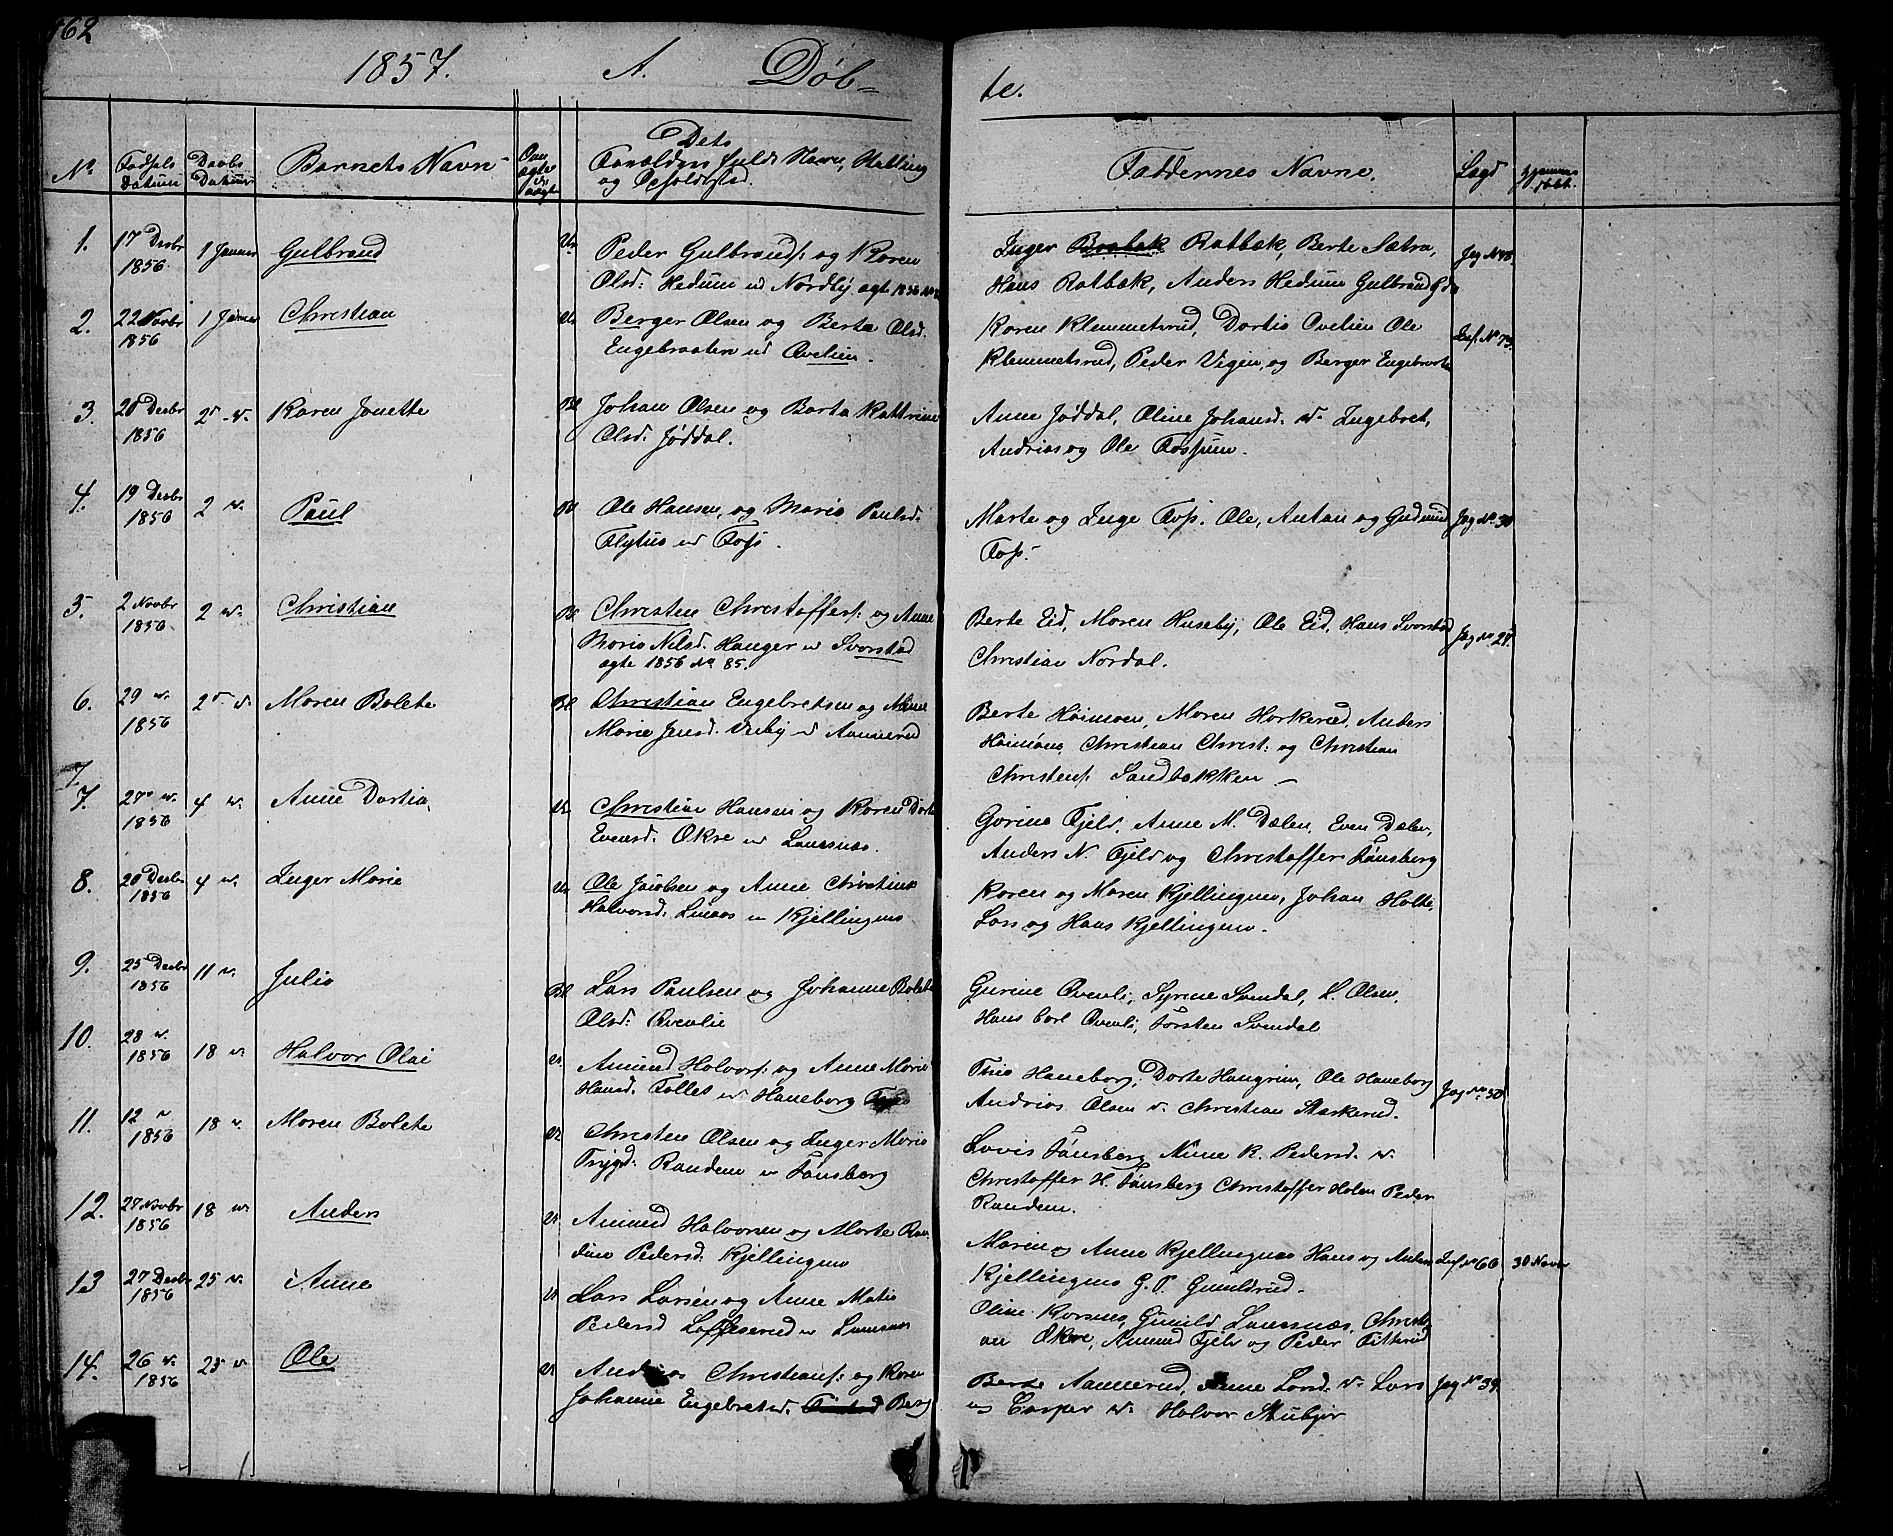 462
1857. A. Døb=
te.
No
Fødsels Datum
Daabs Datum
Barnets Navn
Om ægte el. uægte
Dets
Forældres fulde Navn, Stilling
og Opholdssted.
Faddernes Navne.
Lægd
Hjemme døbt.
1. 17 Decbr 1856 1 Januar Gulbrand
Peder Gulbrands: og Karen
Olsd: Hedum u Nordby
Inger Ratbæk, Berte Sætra,
Hans Ratbæk, Anders Hedum Gulbrand
Jag No 48.
2. 22 Novbr 1856 1 Januar Christian
Berger Olsen og Berte Olsd.
Engebraaten ud Ovelien.
Karen Klemmetsrud, Dortis Ovelien Ole
Klemmetsrud, Peder Vigen, og Berger Engebraaten
Inf. No 73.
3. 20 Decbr 1856 Karen Jonette
Johan Olsen og Berta Kattrine
Olsd. Jøddal.
Anne Jøddal, Oline Johansd. Ingebret,
Andrias og Ole Fossum.
4. 19 Decbr 1856 2 Paul
Ole Hansen, og Marie Paulsd.
Flytus Foss.
Marte og Inge Foss. Ole, Anton og Gudmund
Foss.
Jag No 30
5. 2 Novbr 1856 2 Christian
Christen Christoffers: og Anne
Marie Nilsd. Hanger Svorstad
agte 1856 No 85.
Berte Eid, Maren Huseby, Ole Eid, Hans Svorstad
Christian Nordal.
Jag No 28.
6. 29 1856 Maren Bolete
Christian Engebretsen og Anne
Marie Jensd. Visby Aamerud
Berte Høimoen, Maren Harkerud, Anders
Høimoen, Christian Christ: og Christian
Christens: Sandbakken
7.
7. 1856 4 Anne Dortia
Christian Hansen og Karen Dorte
Evensd. Økre Lausnæs.
Gorine Fjeld, Anne M. Dælen, Even Dælen,
Anders N. Fjeld og Christoffer Tønsberg
8. 20 Decbr 1856 4 Inger Marie
Ole Jacobsen og Anne Christine
Halvorsd. Kjellingmo
Karen og Maren Kjellingmo, Johan Holte,
Lars og Hans Kjellingmo.
9. 25 Decbr 1856 11 Julie
Lars Paulsen og Johanne Bolete
Olsd. Kvenlie
Gurine Ovenli, Syrine Svendal, L. Olsen,
Hans Carl Ovenli, Torsten Svendal
10. 28 1856 18 Halvor Olai
Amund Halvors: og Anne Marie
Hansd. Tollet Haneborg
Haneborg, Dorte Hangrim, Ole Haneborg
Andrias Olsen Christian Starkerud.
Jag No 50
11. 12 1856 18 Maren Bolete
Christen Olsen og Inger Marie
Trygd: Randem Tønsberg
Lovis Tønsberg Anne K. Pedersd.
Christoffer H. Tønsberg Christoffer Holen Peder
Randem.
12. 27 Novbr 1856 18 Anders
Amund Halvorsen og Marte Ran-
dine Pedersd. Kjellingmo
Maren og Anne Kjellingmo Hans og Anders
Kjellingmo G. P. Gunildrud.
Inf No 60
30 Novbr
13 27 Decbr 1856 25 Anne
Lars Larsen og Anne Matia
Pedersd Løffeserud
Oline Korsmo, Gunild Lausnæs, Christi-
an Økre, Amund Fjeld og Peder Titterud
14. 26 1856 25 Ole
Andrias Christians: og Karen
Johanne Engebretsd. Berg
Berte Aamerud, Anne Larsd. Lars
og Casper Halvor Stubjør
Jag No 39.